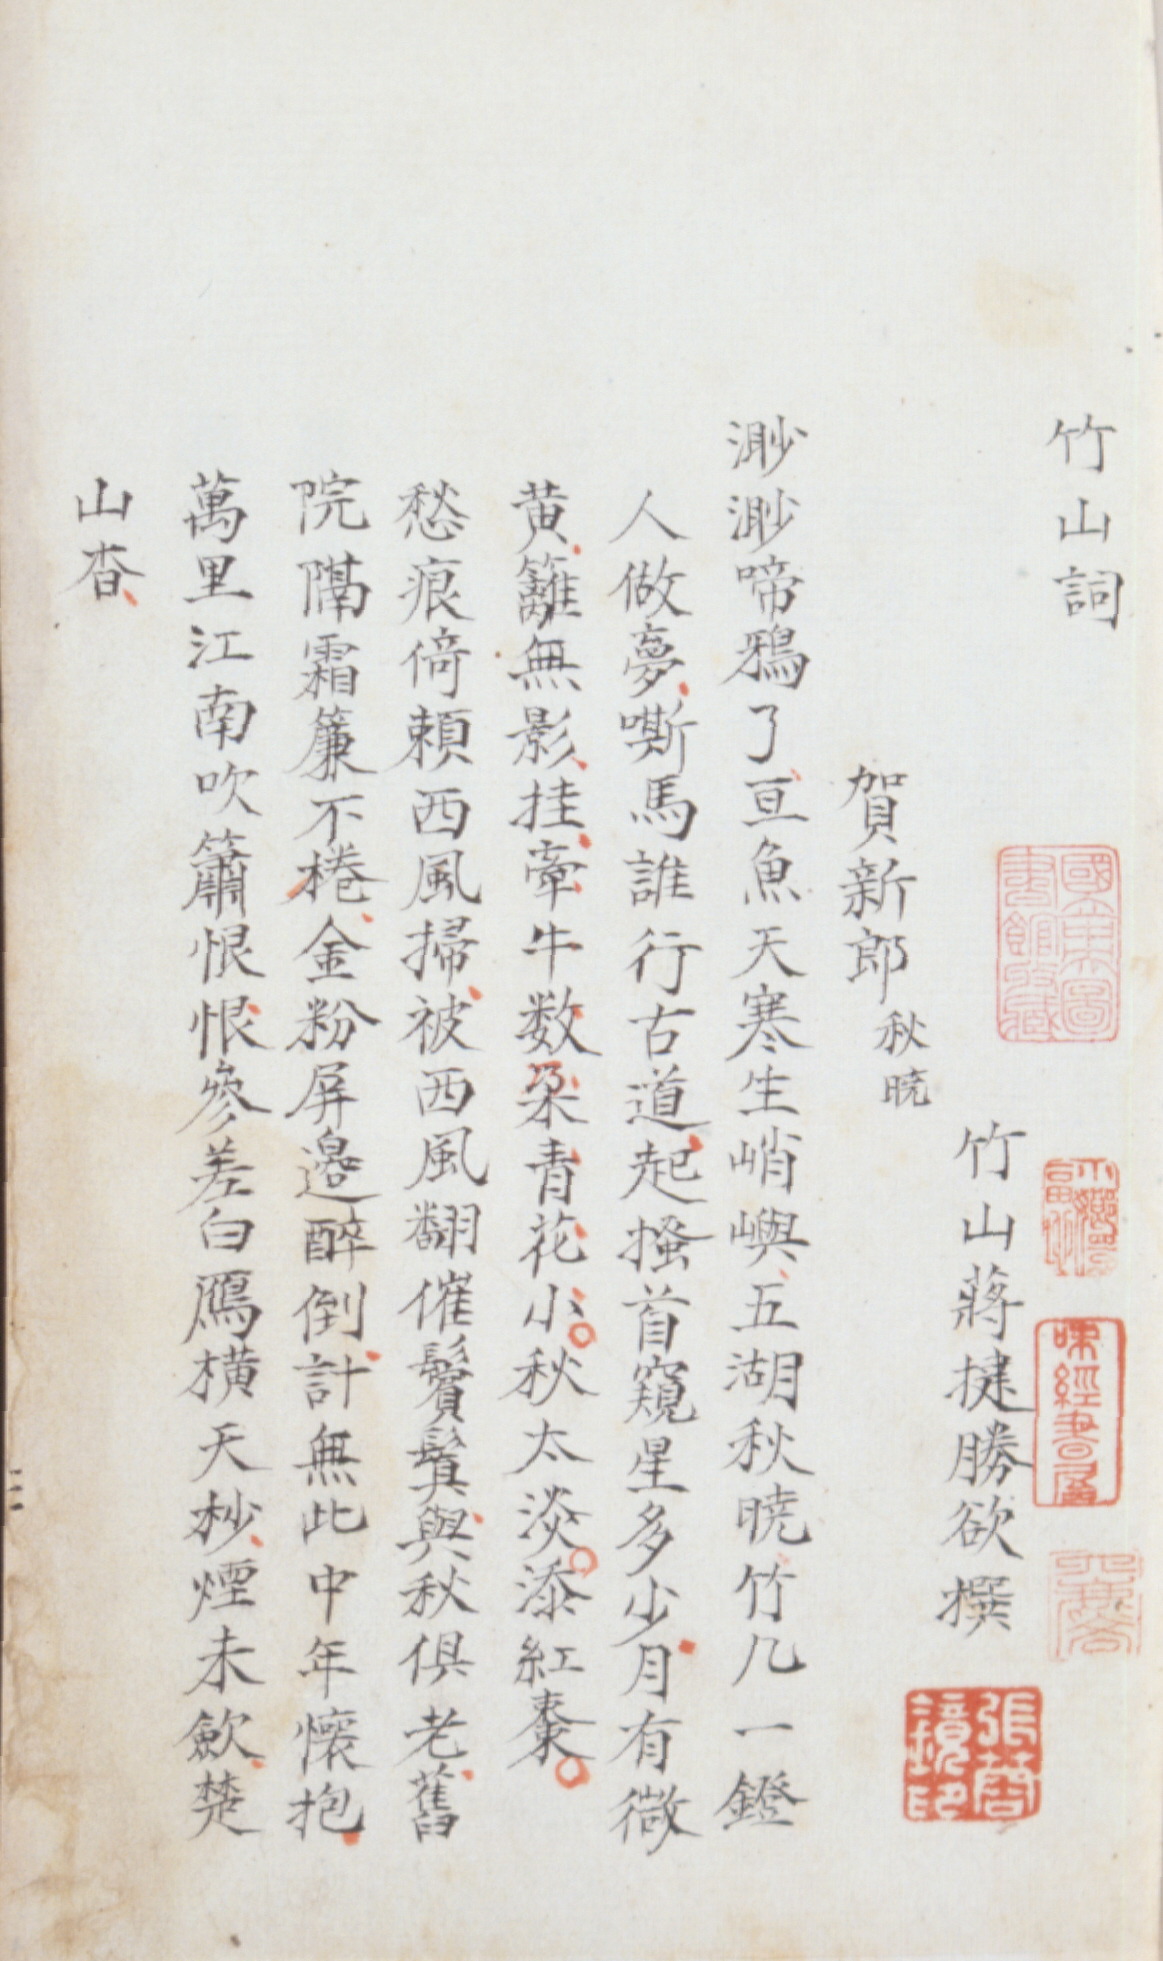 竹山詞
竹山蔣捷勝欲撰
賀新郎秋曉
渺渺啼鴉了亘魚天寒生峭嶼五湖秋曉竹几一鐙
人做夢嘶馬誰行古道起搔首窺星多少月有微
黃籬無影挂牽牛数朶青花小秋太淡添紅棗
愁痕倚賴西風掃被西風翻催鬢鬒與秋俱老舊
院隔霜簾不捲金粉屏邊醉倒計無此中年懷抱
萬里江南吹簫恨恨參差白鴈橫天杪煙未歛楚
山杳
國立中央圖書館收藏
味經書屋
張蓉鏡印